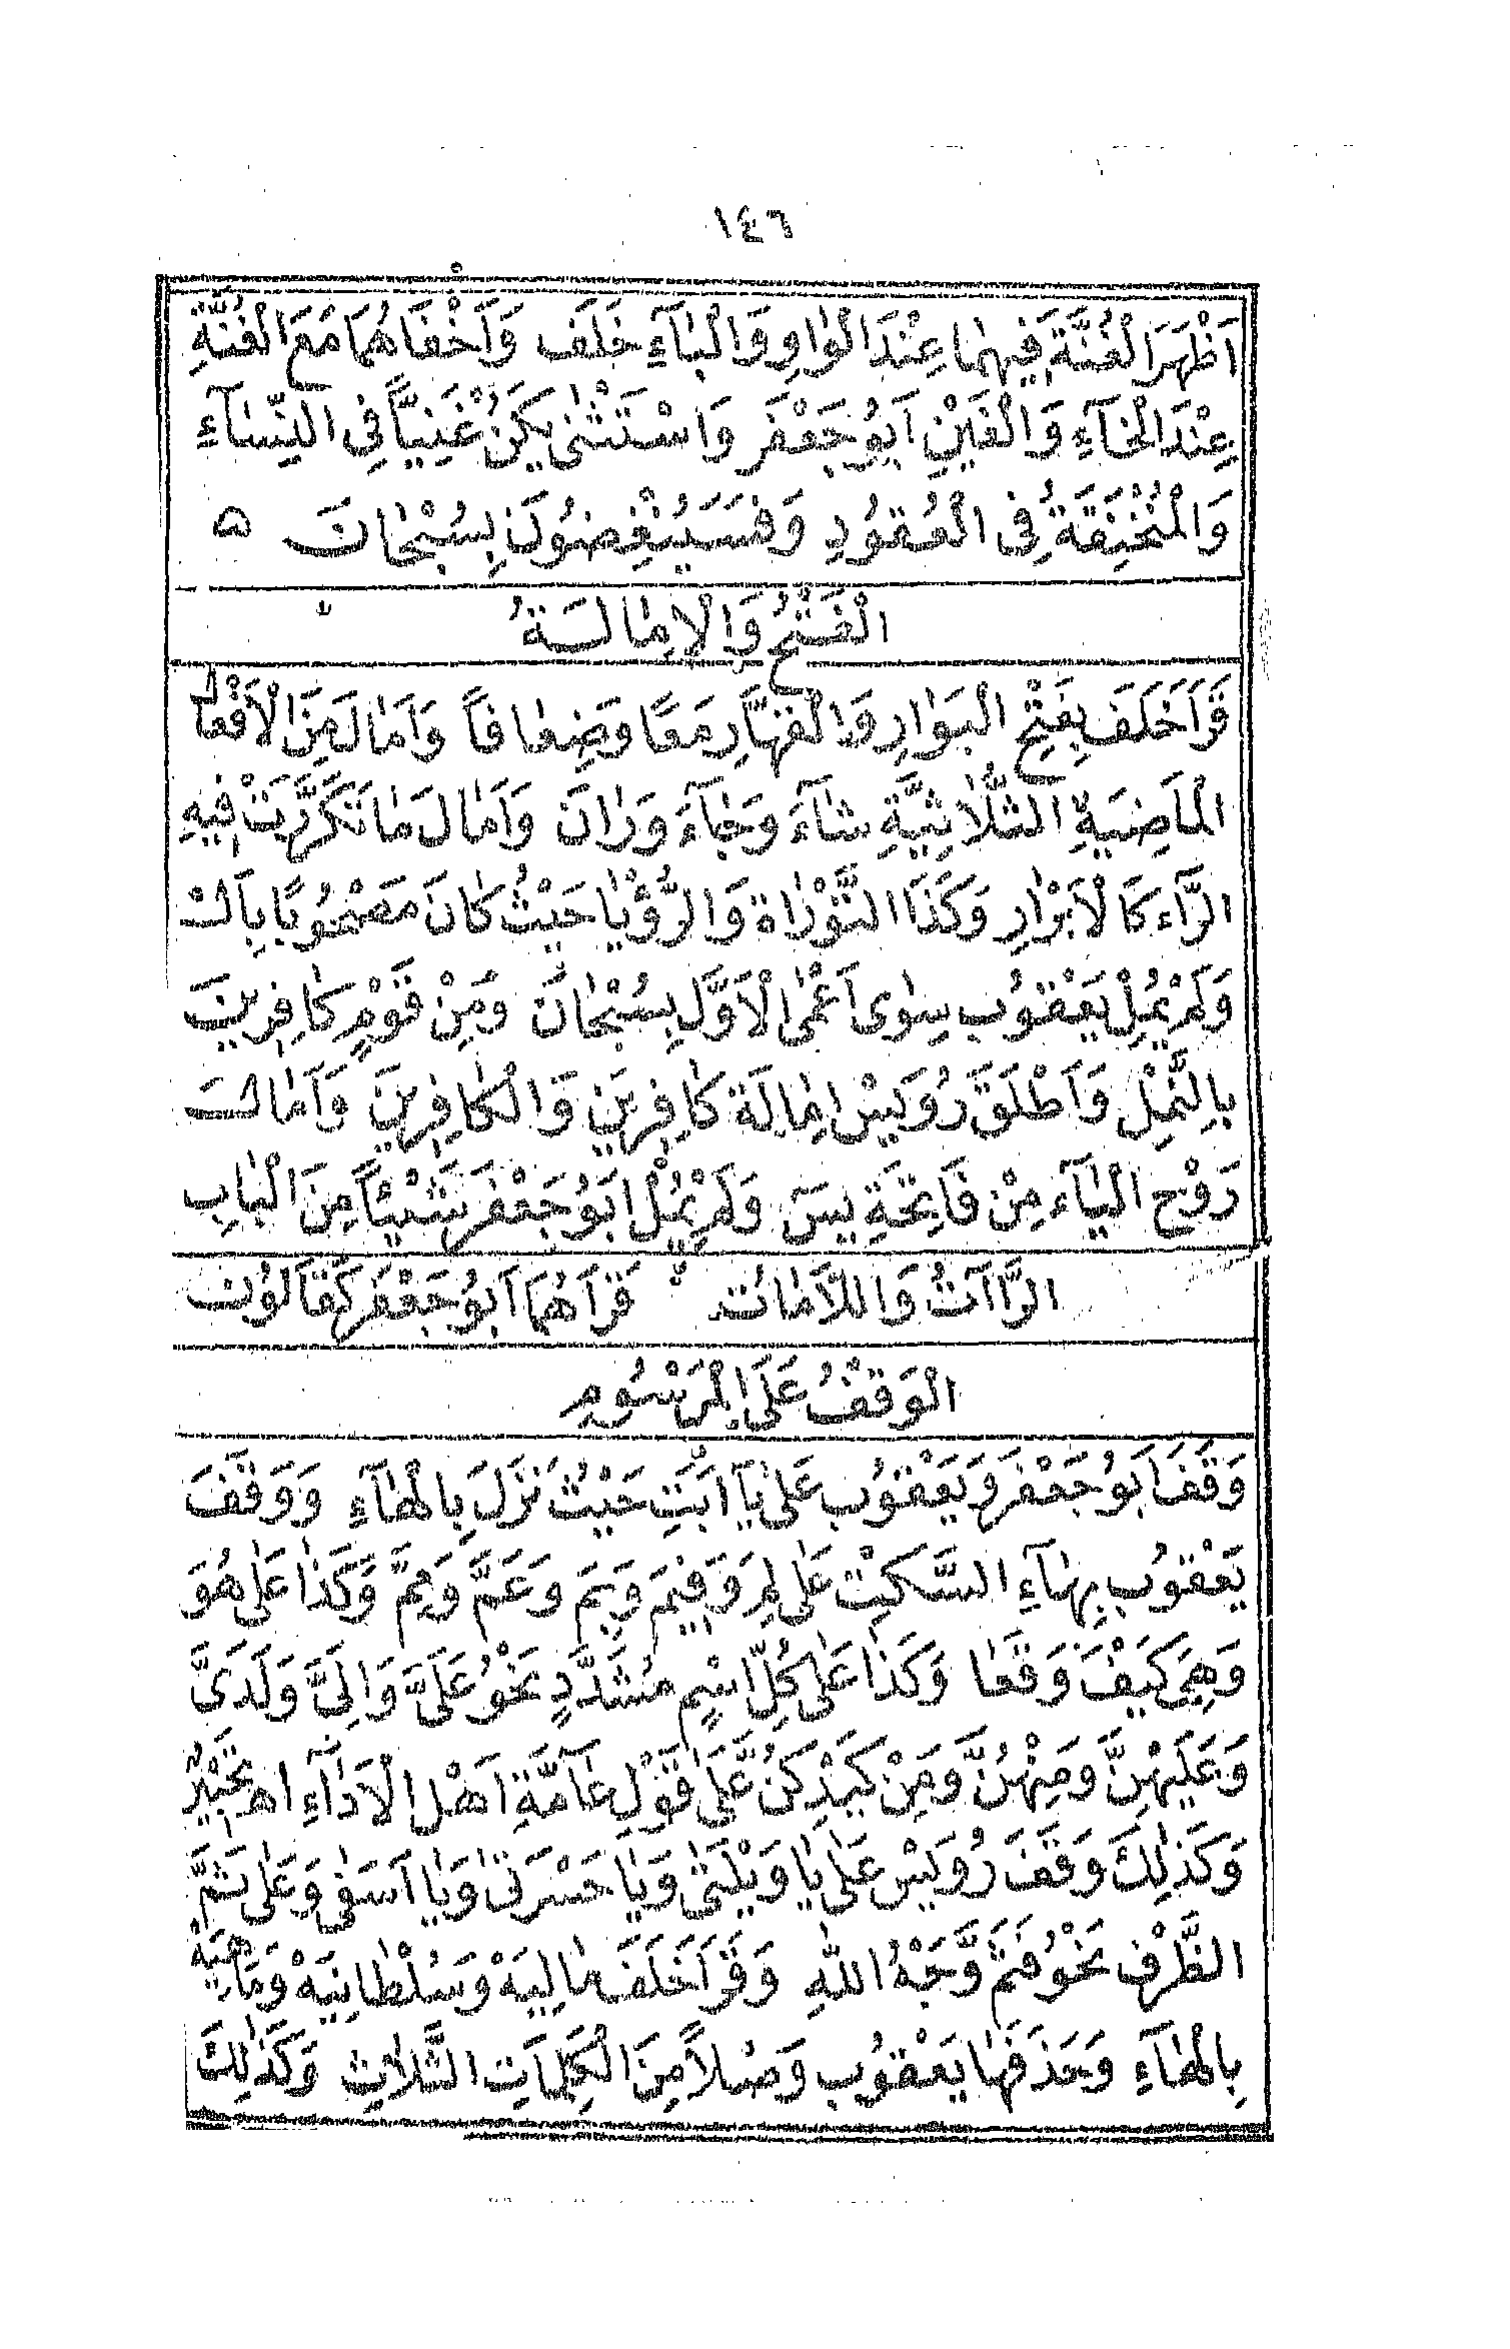 ١٤٦
اَظْهَرَ الْغُنَّةَ فِيهِمَا عِنْدَ الْوٰاوِ وَالْيٰآءِ خَلَف وَاَخْفَاهُمَا مَعَ الْغُنَّةِ
عِنْدَ الْخٰآءِ وَالْغَيْنِ اَبُو جَعْفَر وَاسْتَثْنٰى يَكُنْ غَنِيّاً فِى النِّسٰآءِ
وَالْمُنْخَنِقَةُ فِى الْعُقُودِ وَفَسَيُنْغِضُونَ بِسُبْحٰانَ ۵
الْفَتْحُ وَالْاِمٰالَةُ
قَرَاَ خَلَف بِفَتْحِ الْبَوٰارِ وَالْقَهَّارِ مَعًا وَضِعٰافاً وَاَمٰالَ مِنَ الْاَفْعٰالِ
الْمَاضِيَةِ الثُّلٰاثِيَّةِ شٰآءَ وَجٰآءَ وَرٰانَ وَاَمٰالَ مٰا تَكَرَّرَتْ فِيهِ
الرّٰآء كَالْاَبْرٰارِ وَكَذَا التَّوْرٰاة وَالرُّؤْيٰا حَيْثُ كٰانَ مَصْحُوبًا بِاَلْ
وَلَمْ يُمِلْ يَعْقُوب سِوٰى اَعْمٰى الْاَوَّلِ بِسُبْحٰانَ وَمِنْ قَوْمٍ كٰافِرِينَ
بِالنَّمْلِ وَاَطْلَقَ رُوَيْس اِمٰالَة كٰافِرِينَ وَالْكٰافِرِينَ وَاَمٰالَ
رَوْح الْيٰآء مِنْ فَاتِحَةِ يسَ وَلَمْ يُمِلْ اَبُو جَعْفَر شَيْئاً مِنَ الْبٰابِ
الرَّاآتُ وَاللّٰامٰاتُ قَرَاَهُمَا اَبُو جَعْفَر كَقٰالُون
الْوَقْفُ عَلَى الْمَرْسُومِ
وَقَفَ اَبُو جَعْفَر وَيَعْقُوب عَلٰى يٰآ اَبَتِ حَيْثُ نَزَلَ بِالْهٰآءِ وَوَقَفَ
يَعْقُوب بِهٰآءِ السَّكْتِ عَلٰى لِمَ وَفِيمَ وَبِمَ وَعَمَّ وَمِمَّ وَكَذٰا عَلٰى هُوَ
وَهِىَ كَيْفَ وَقَعٰا وَكَذٰا عَلٰى كُلِّ اسْمٍ مُشَدَّدٍ نَحْوُ عَلَىَّ وَاِلَىَّ وَلَدَىَّ
وَعَلَيْهِنَّ وَمِنْهُنَّ وَمِنْ كَيْدِكُنَّ عَلٰى قَوْلِ عٰامَّةِ اَهْلِ الْاَدٰآءِ اهـ تَحْبِيْر
وَكَذٰلِكَ وَقَفَ رُوَيْس عَلٰى يٰا وَيْلَتٰى وَيٰا حَسْرَتٰى وَيٰا اَسَفٰى وَعَلٰى ثَمَّ
الظَّرْفِ نَحْوُ فَثَمَّ وَجْهُ اللّٰهِ وَقَرَاَ خَلَف مٰالِيَهْ وَسُلْطٰانِيَهْ وَمَاهِيَهْ
بِالْهٰآءِ وَحَذَفَهٰا يَعْقُوب وَصْلاً مِنَ الْكَلِمٰاتِ الثَّلٰاثِ وَكَذٰلِكَ